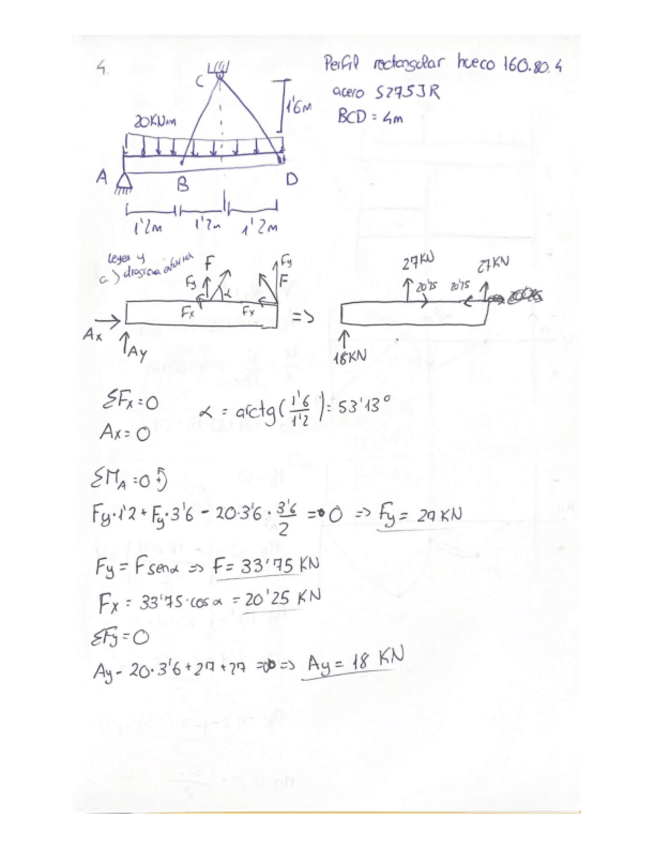 4.
Perfil rectangular hueco 160.80.4
acero S275JR
BCD = 4m
C
1'6m
20KN/m
A
B
D
1'2m 1'2m 1'2m
Leyes y
a) diagrama
F Fy
Fy α F
Fx Fx
Ax
Ay
=>
27KN 27KN
20'25 20'25
18KN
ΣFx=0
α = arctg(1'6/1'2) = 53'13°
Ax=0
ΣMA=0
Fy·1'2 + Fy·3'6 - 20·3'6·3'6/2 = 0 => Fy = 27 KN
Fy = F senα => F = 33'75 KN
Fx = 33'75·cosα = 20'25 KN
ΣFy=0
Ay - 20·3'6 + 27 + 27 = 0 => Ay = 18 KN